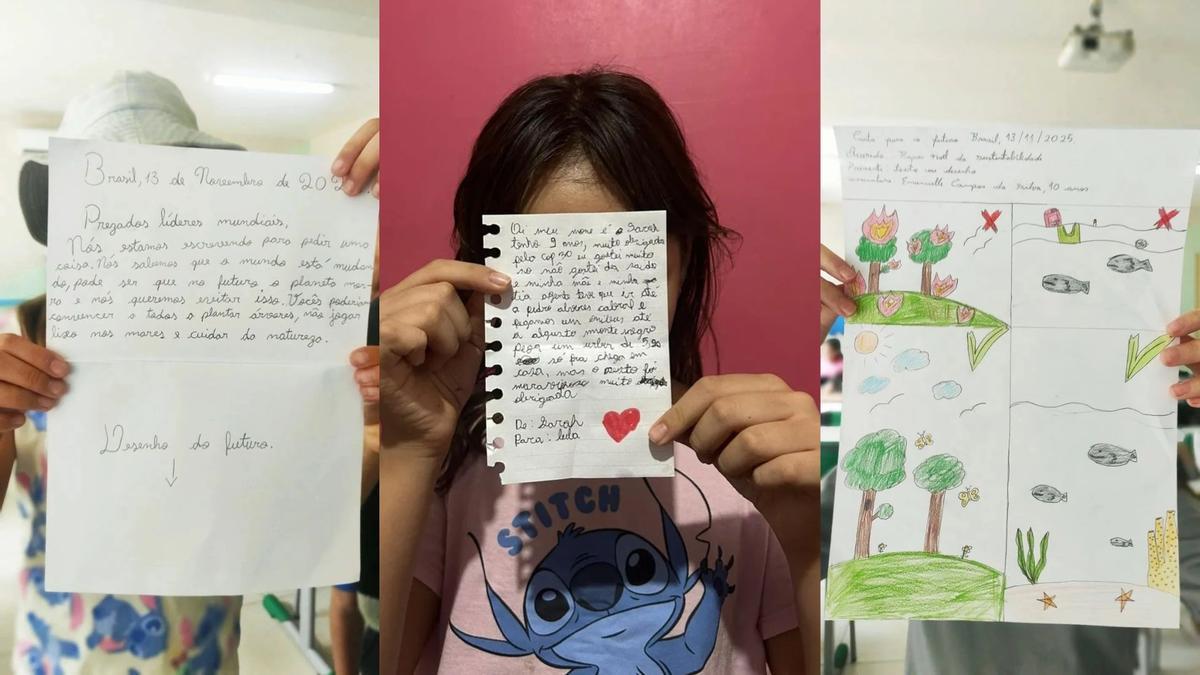 Brasil, 13 de Novembro de 202
Prezados líderes mundiais,
Nós estamos escrevendo para pedir uma
coisa. Nós sabemos que o mundo está mudan
do, pode ser que no futuro, o planeta mor-
ra e nós queremos evitar isso. Vocês poderiam
convencer a todos a plantar árvores, não jogar
lixo nos mares e cuidar da natureza.
Desenho do futuro.
Oi meu nome é Sarah
tenho 9 anos, muito obrigada
pelo cop30 eu gostei muito
so não gostei da saida
e minha mãe e minha
tia agente teve que ir até
a pedro alvares cabral e
pegamos um ônibus até
a augusto monte negro
pegar um uber de 5,90
só pra chega em
casa, mas o resto foi
maravoisoso muito
obrigada
De: Sarah
Para: lula
STITCH
Carta para o futuro Brasil, 13/11/2025.
sustentabilidade
Presente: texto ou desenho
Emanuelle Campos da Silva, 10 anos